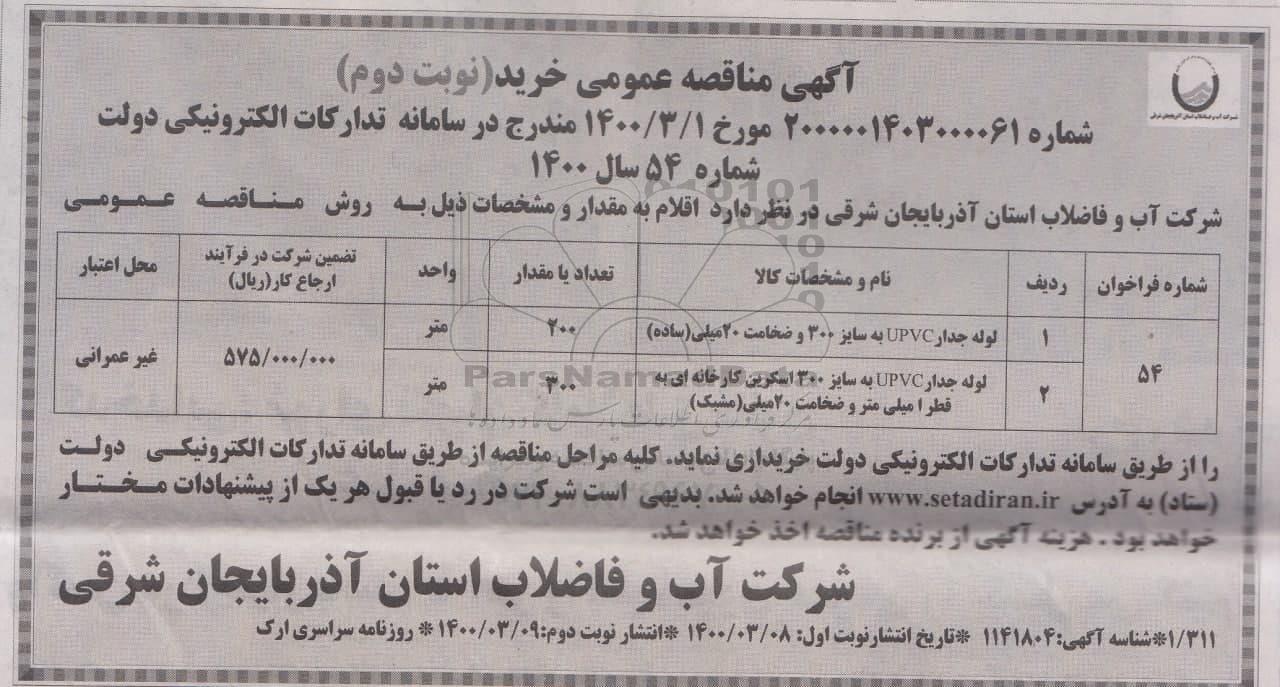 آگهی مناقصه عمومی خرید(نوبت دوم)
شرکت آب و فاضلاب استان آذربایجان شرقی
شماره ۲۰۰۰۰۰۱۴۰۳۰۰۰۰۶۱ مورخ ۱۴۰۰/۳/۱ مندرج در سامانه تدارکات الکترونیکی دولت
شماره ۵۴ سال ۱۴۰۰
شرکت آب و فاضلاب استان آذربایجان شرقی در نظر دارد اقلام به مقدار و مشخصات ذیل به روش مناقصه عمومی
شماره فراخوان ردیف نام و مشخصات کالا تعداد یا مقدار واحد تضمین شرکت در فرآیند ارجاع کار(ریال) محل اعتبار
۵۴ ۱ لوله جدار UPVC به سایز ۳۰۰ و ضخامت ۲۰میلی(ساده) ۲۰۰ متر ۵۷۵/۰۰۰/۰۰۰ غیر عمرانی
۲ لوله جدار UPVC به سایز ۳۰۰ اسکرین کارخانه ای به قطر ۱ میلی متر و ضخامت ۲۰میلی(مشبک) ۳۰۰ متر
را از طریق سامانه تدارکات الکترونیکی دولت خریداری نماید. کلیه مراحل مناقصه از طریق سامانه تدارکات الکترونیکی دولت
(ستاد) به آدرس www.setadiran.ir انجام خواهد شد. بدیهی است شرکت در رد یا قبول هر یک از پیشنهادات مختار
خواهد بود . هزینه آگهی از برنده مناقصه اخذ خواهد شد.
شرکت آب و فاضلاب استان آذربایجان شرقی
۱/۳۱۱*شناسه آگهی:۱۱۴۱۸۰۴ *تاریخ انتشارنوبت اول: ۱۴۰۰/۰۳/۰۸ *انتشار نوبت دوم:۱۴۰۰/۰۳/۰۹* روزنامه سراسری ارک